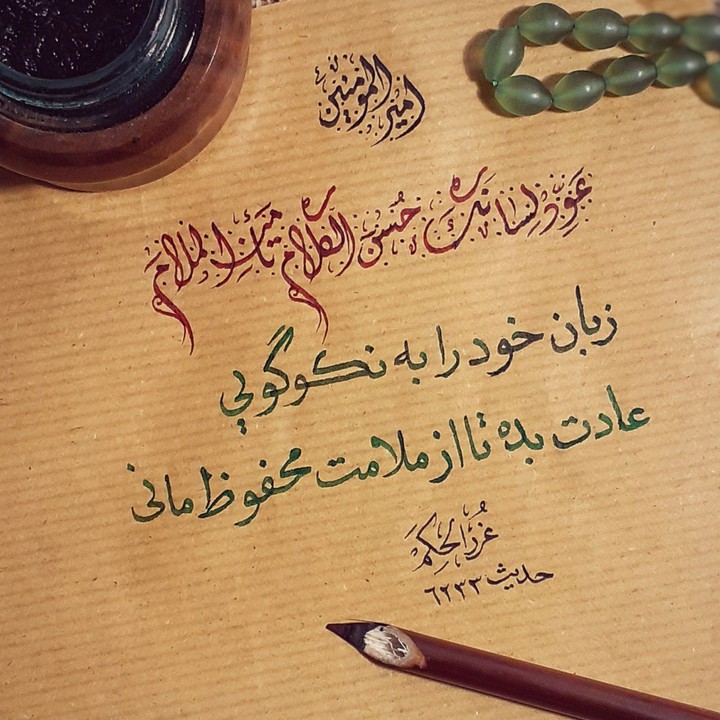 امیر المومنین
عَوِّد لِسانَکَ حُسنَ الکَلامِ تَأمَنِ المَلامَ
زبان خود را به نکوگویی
عادت بده تا از ملامت محفوظ مانی
غُرَرُ الحِکَم
حدیث ٦٢٣٣